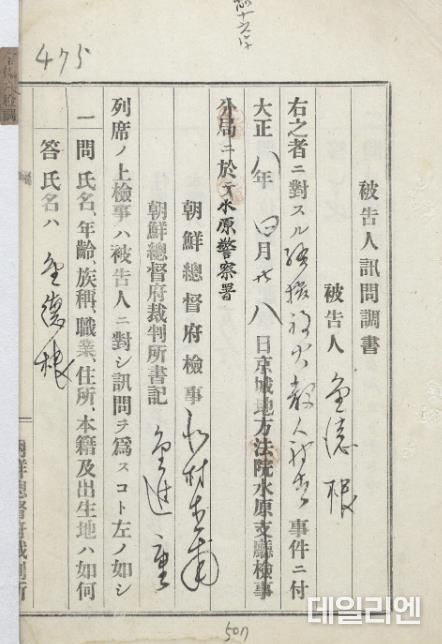 475
被告人訊問調書
被告人 金德根
右之者ニ對スル騷擾放火殺人 事件ニ付
大正八年四月廿八日京城地方法院水原支廳檢事
分局ニ於テ水原警察署
朝鮮總督府檢事
朝鮮總督府裁判所書記
列席ノ上檢事ハ被告人ニ對シ訊問ヲ爲スコト左ノ如シ
一問 氏名、年齡、族稱、職業、住所、本籍及出生地ハ如何
答 氏名ハ 金德根
朝鮮總督府裁判所
507
데일리엔